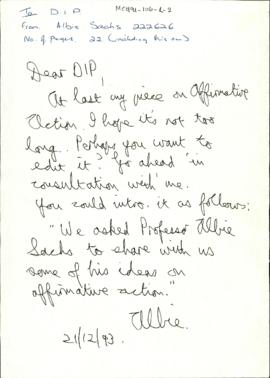 To D.I.P. MCH91-106-6-2
From Albie Sachs 222626
No. of pages. 22 (including this one)
Dear DIP,
At last my piece on Affirmative
Action. I hope it's not too
long. Perhaps you want to
edit it? Go ahead in
consultation with me.
You could intro. it as follows:
"We asked Professor Albie
Sachs to share with us
some of his ideas on
affirmative action."
Albie.
21/12/93.